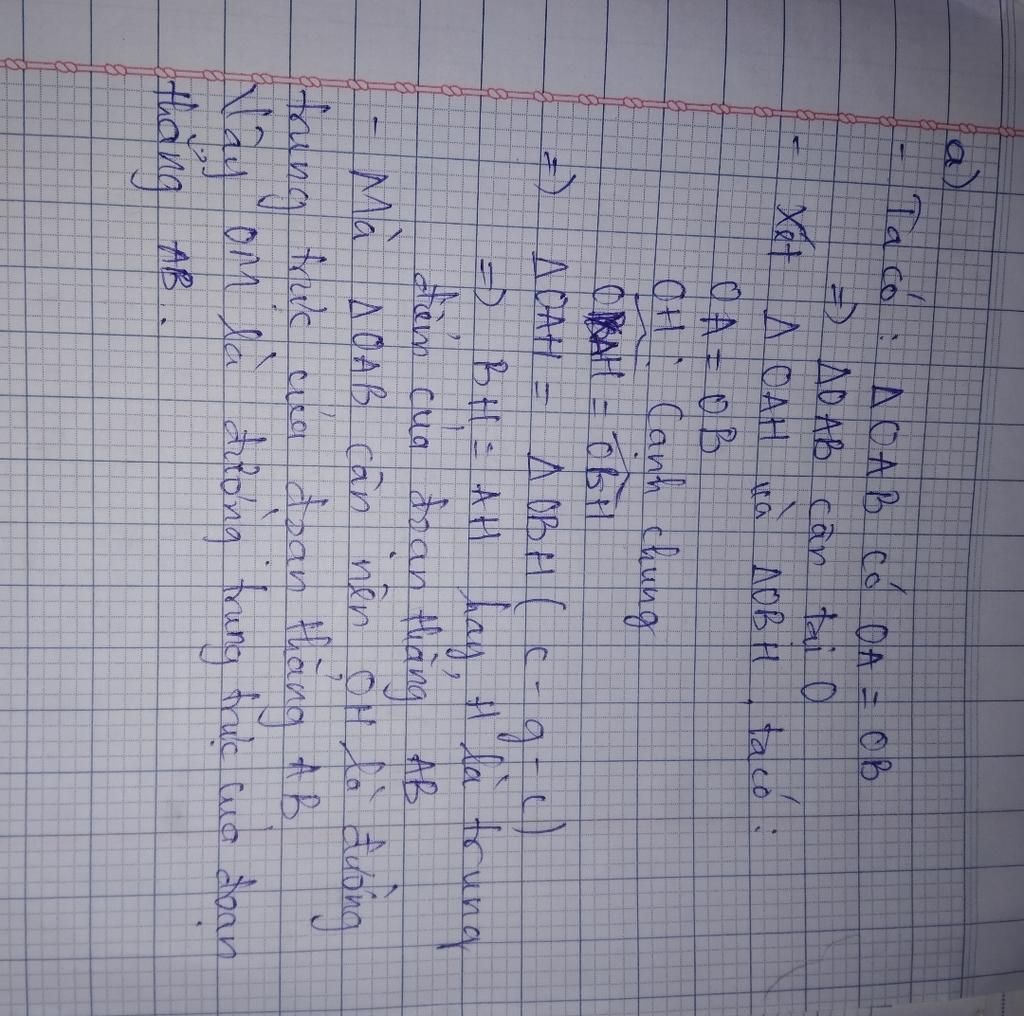 a)
- Ta có: ΔOAB có OA = OB
=) ΔOAB cân tại O
- Xét ΔOAH và ΔOBH, ta có:
OA = OB
OH: Cạnh chung
OAH = OBH
=) ΔOAH = ΔOBH (c-g-c)
=) BH = AH hay H là trung
điểm của đoạn thẳng AB
- Mà ΔOAB cân nên OH là đường
trung trực của đoạn thẳng AB
Vậy OM là đường trung trực của đoạn
thẳng AB.